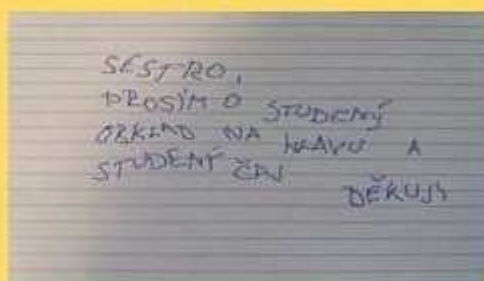 SESTRO,
PROSÍM O STUDENÝ
OBKLAD NA HLAVU A
STUDENÝ ČAJ
DĚKUJI